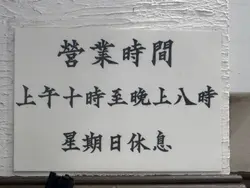 營業時間
上午十時至晚上八時
星期日休息